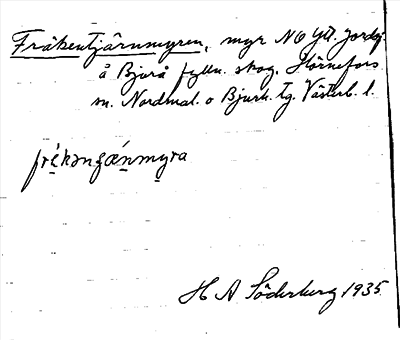 Fräkentjärnmyren, myr NO ytt. jordg.
å Bjurå fylln. skog, Hörnefors
sn. Nordmal. o Bjurh. tg. Västerb. l.
frḙ́kəngǽn̥myra
H A Söderberg 1935